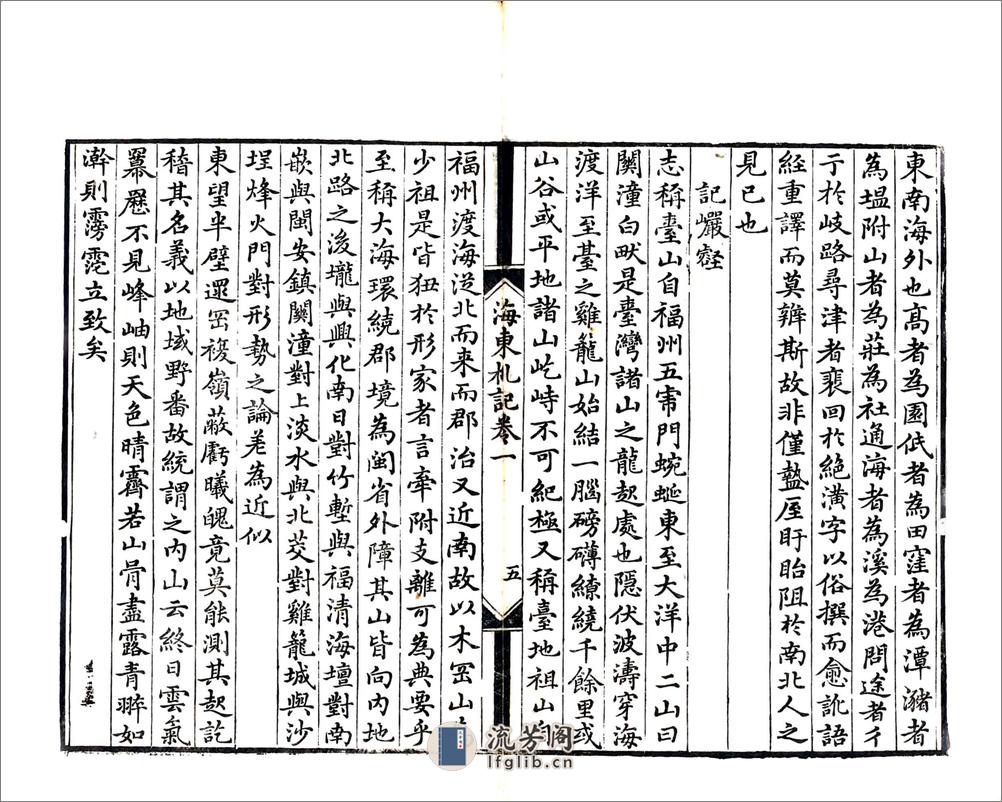 東南海外也高者為園低者為田窪者為潭瀦者
為塭附山者為莊為社通海者為溪為港問途者彳
亍於岐路尋津者裵回於絶潢字以俗撰而愈訛語
經重譯而莫辨斯故非僅盩厔盱眙阻於南北人之
見已也
記巖壑
志稱臺山自福州五虎門蜿蜒東至大洋中二山曰
關潼白畎是臺灣諸山之龍起處也隱伏波濤穿海
渡洋至臺之雞龍山始結一腦磅礴繚繞千餘里或
山谷或平地諸山屹峙不可紀極又稱臺地祖山自
海東札記卷一
五
福州渡海從北而来而郡治又近南故以木罡山
少祖是皆狃於形家者言牽附支離可為典要乎
至稱大海環繞郡境為閩省外障其山皆向内地
北路之後壠與興化南日對竹塹與福清海壇對南
嵌與閩安鎮關潼對上淡水與北茭對雞籠城與沙
埕烽火門對形勢之論差為近似
東望半壁遝罡複嶺蔽虧曦魄竟莫能測其起訖
稽其名義以地域野番故統謂之内山云終日雲氣
羃歷不見峰岫則天色晴霽若山骨盡露青翠如
澣則霶霓立致矣
流芳阁
lfglib.cn